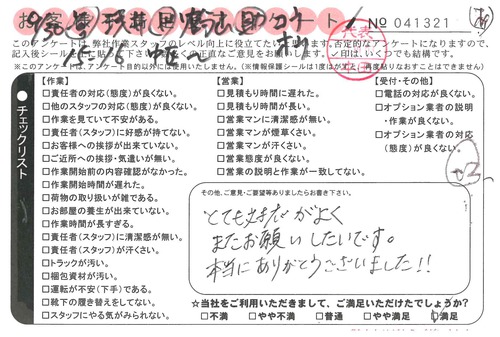 お客様アンケート № 041321
このアンケートは、弊社作業スタッフのレベル向上に役立てたいと思います。否定的なアンケートになりますので、
記入後シールを上に貼って下さい。率直なご意見をお願いします。✓印は、いくつでも結構です。
※このアンケートは、アンケート目的以外には使用いたしません。(※情報保護シールは1度はがすと、再度貼りなおすことはできません)
チェックリスト
【作業】
□責任者の対応(態度)が良くない。
□他のスタッフの対応(態度)が良くない。
□作業を見ていて不安がある。
□責任者(スタッフ)に好感が持てない。
□お客様への挨拶が出来ていない。
□ご近所への挨拶・気遣いが無い。
□作業開始前の内容確認がなかった。
□作業開始時間が遅れた。
□荷物の取り扱いが雑である。
□お部屋の養生が出来ていない。
□作業時間が長すぎる。
□責任者(スタッフ)に清潔感が無い。
□責任者(スタッフ)が汗くさい。
□トラックが汚い。
□梱包資材が汚い。
□運転が不安(下手)である。
□靴下の履き替えをしてない。
□スタッフにやる気がみられない。
【営業】
□見積もり時間に遅れた。
□見積もり時間が長い。
□営業マンに清潔感が無い。
□営業マンが煙草くさい。
□営業マンが汗くさい。
□営業態度が良くない。
□営業の説明と作業が一致してない。
【受付・その他】
□電話の対応が良くない。
□オプション業者の説明
・作業が良くない。
□オプション業者の対応
(態度)が良くない。
その他、ご意見・ご要望等ありましたらお書き下さい。
とても対応がよく
またお願いしたいです。
本当にありがとうございました!!
☆当社をご利用いただきまして、ご満足いただけたでしょうか?
□不満 □やや不満 □普通 □やや満足 □満足